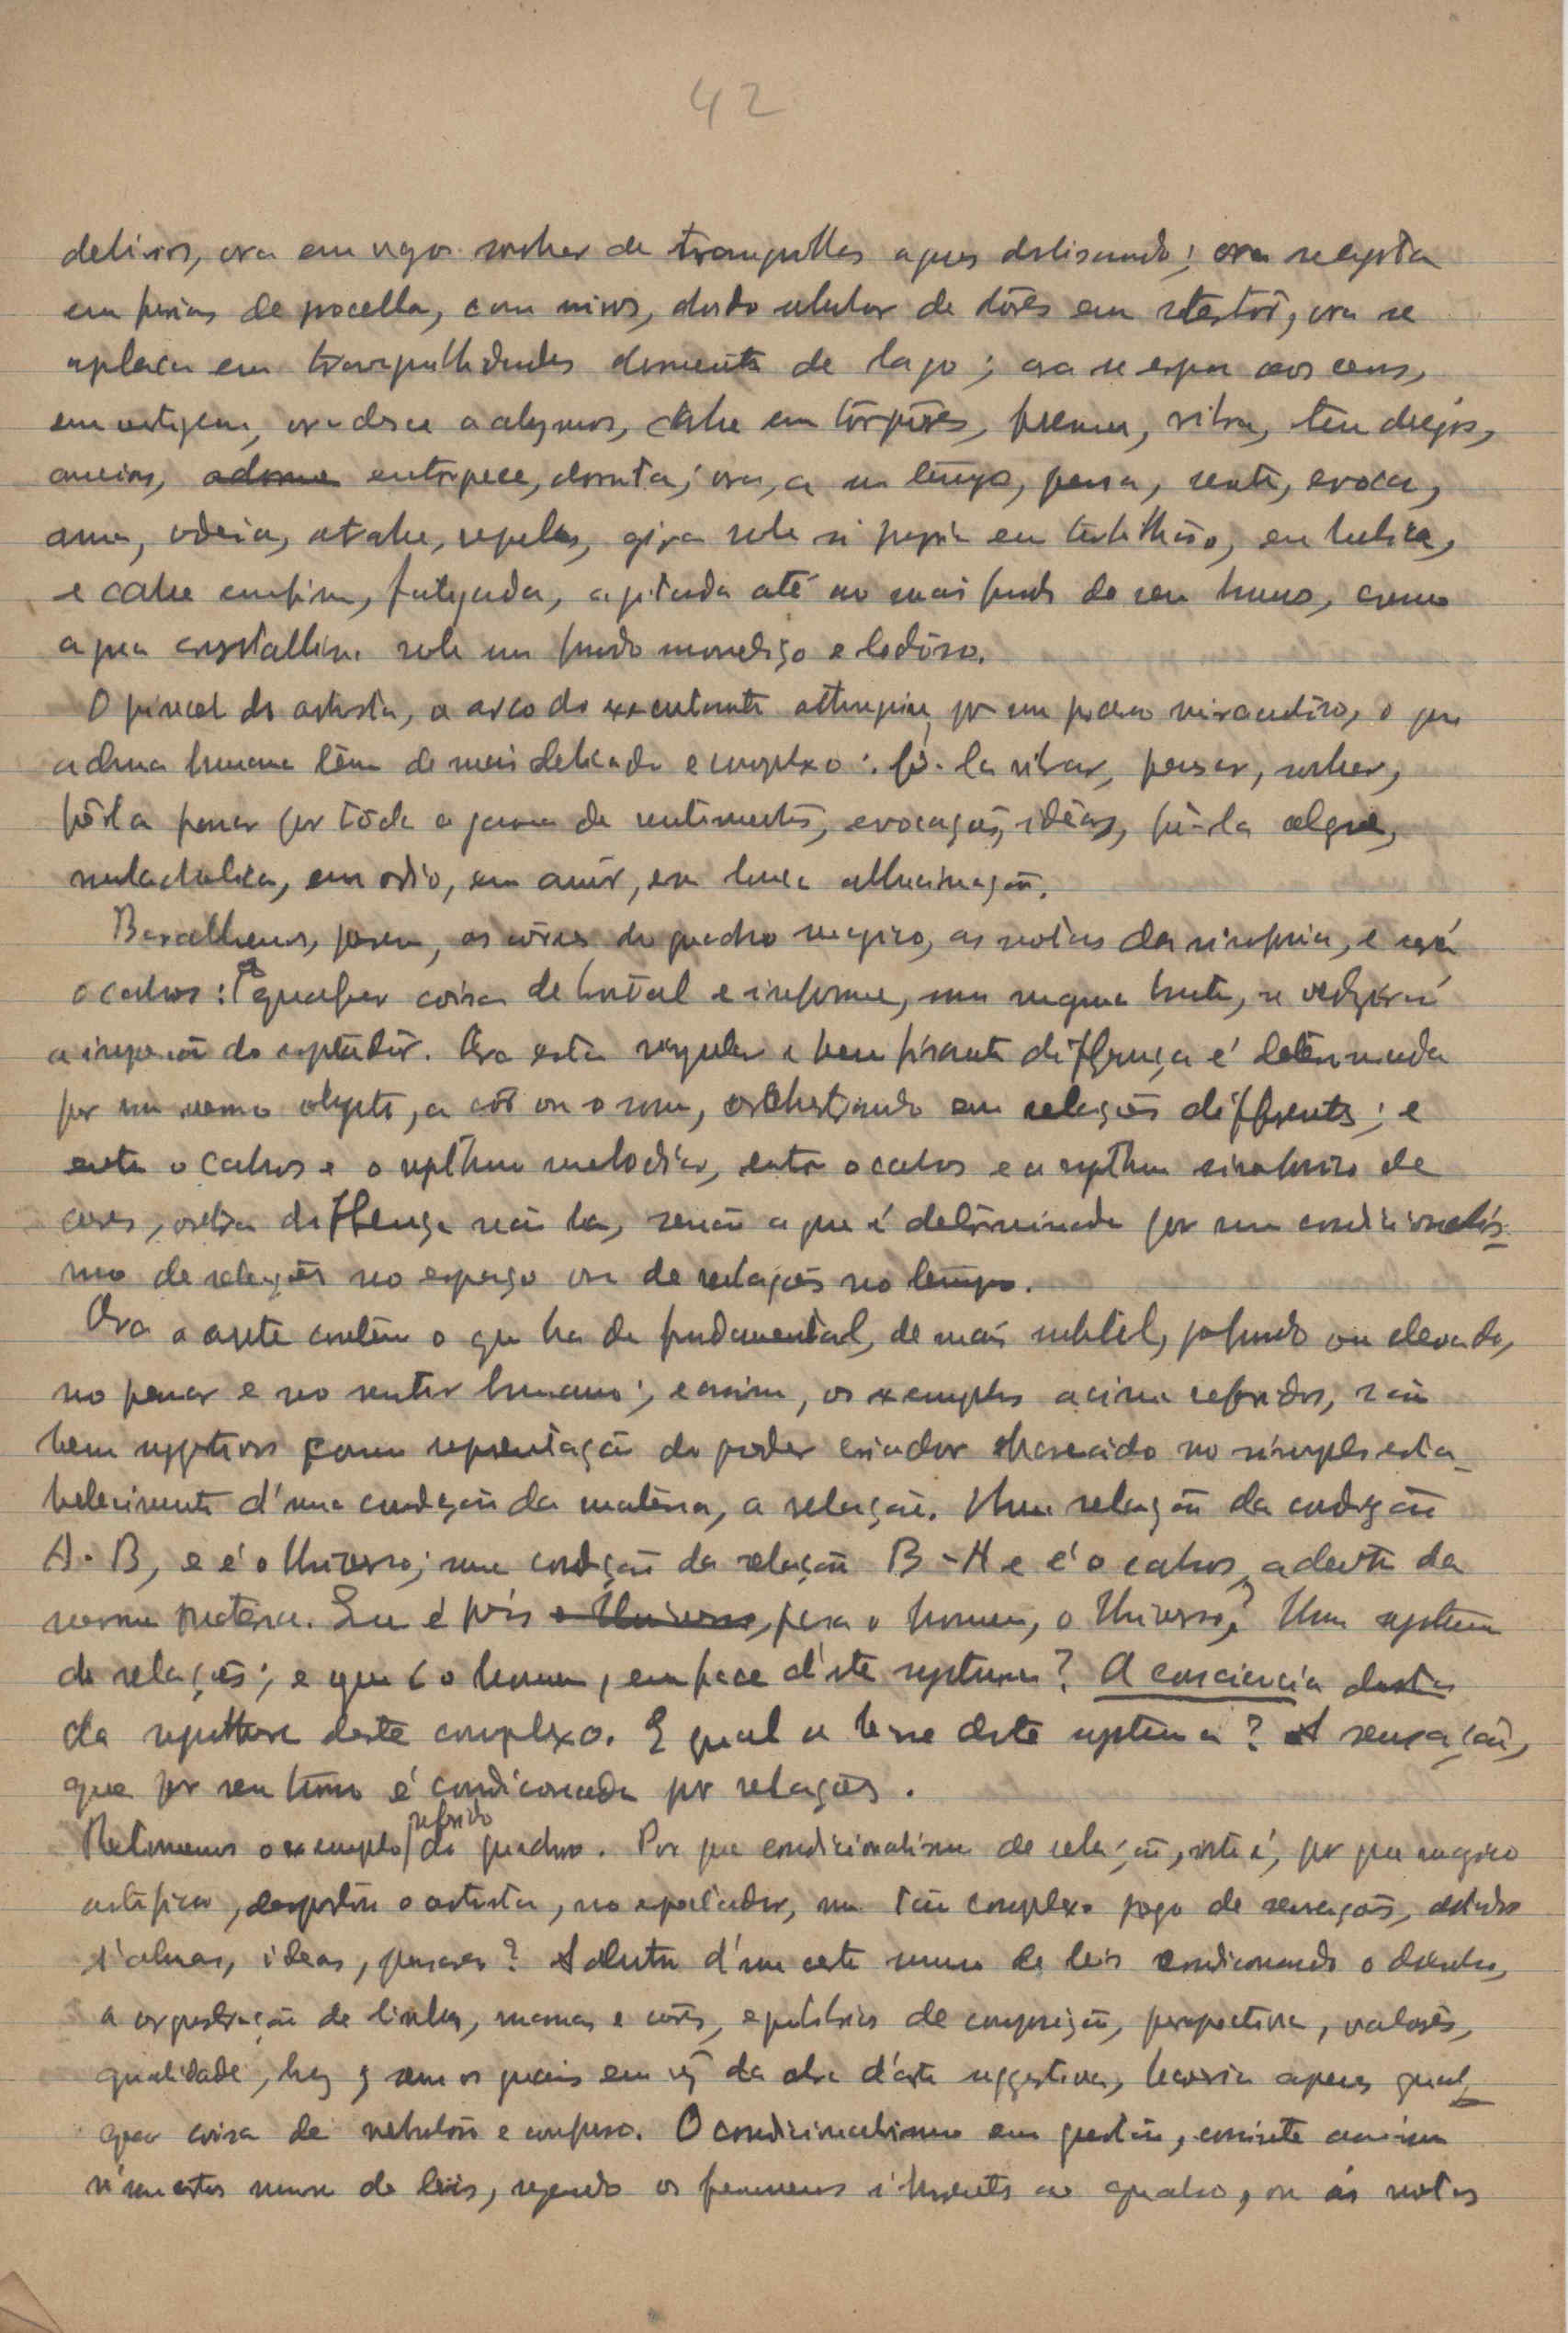 42
delirios, ora em vagos sonhar de tranquillas aguas deslisando; ora se agita
em furias de procella, com uivos, ululos de dôres em estertôr, ora se
aplaca em tranquillidades dormente de lago; ora se ergue aos ceus,
em vertigem, ora desce a abysmos, cahe em tôrpôres, freme, vibra, tem desejos,
anceios, entorpece, ; ora, a um tempo, pensa, sente, evoca,
ama, odeia, atrahe, repele, gira sobre si propria em turbilhão, em helice,
e cahe emfim, fatigada, agitada até ao mais fundo do seu humo, como
agua crystallina sobre um fundo movediço e lodôso.
O pincel do artista, o arco do executante attingira, por um poder miraculoso, o que
a alma humana têm de mais delicado e complexo: fê-la vibrar, pensar, sonhar,
fê-la passar por tôda a gama de sentimentos, evocações, idêas, fê-la alegre,
melancholica, em odio, em amôr, em louca allucinação.
Baralhemos, porem, as côres do quadro magico, as notas da sinfonia, e será
o cahos: a qualquer coisa de brutal e informe, numa bruta, se reduzirá
a impressão do espectadôr. Ora esta singular e bem frisante differença é determinada
por um mesmo objecto, a côr ou o som, orchestrando em relações differentes; e
entre o cahos e o rythmo melodico, entre o cahos e o rythmo sinfonico de
cores, outra differença não ha, senão a que é determinada por um condicionalis-
mo de relações no espaço ou de relações no tempo.
Ora a arte contêm o que ha de fundamental, de mais subtil, profundo ou elevado,
no pensar e no sentir humano; e assim, os exemplos acima referidos, são
bem suggestivos como representação do poder criador no simples esta-
belecimento d'uma condição da matéria, a relação. Uma relação da condição
A-B, e é o Universo; uma condição da relação B-A e é o cahos, a dentro da
mesma matéria. Que é pois o Universo, para o homem, o Universo? Um systema
de relações; e que é o homem, em face d'este systema? A consciencia desta
da deste complexo. E qual a base deste systema? A sensação,
que por seu turno é condicionada por relações.
Retomemos o exemplo referido do quadro. Por que condicionalismo de relação, isto é, por que magico
artificio, despertou o artista, no espectador, um tão complexo jogo de sensações, estados
d'almas, ideas, pensares? A dentro d'um certo numero de leis condicionando o desenho,
a orquestração de linhas, massas e côres, equilibrios de composição, perspectiva, valores,
qualidade, luz, sem os quais em vez da obra d'arte suggestiva, haveria apenas qual-
quer coisa de nebulôso e confuso. O condicionalismo em questão, consiste assim
n'um certo numero de leis, regendo os fenomenos inherentes ao quadro, ou ás notas